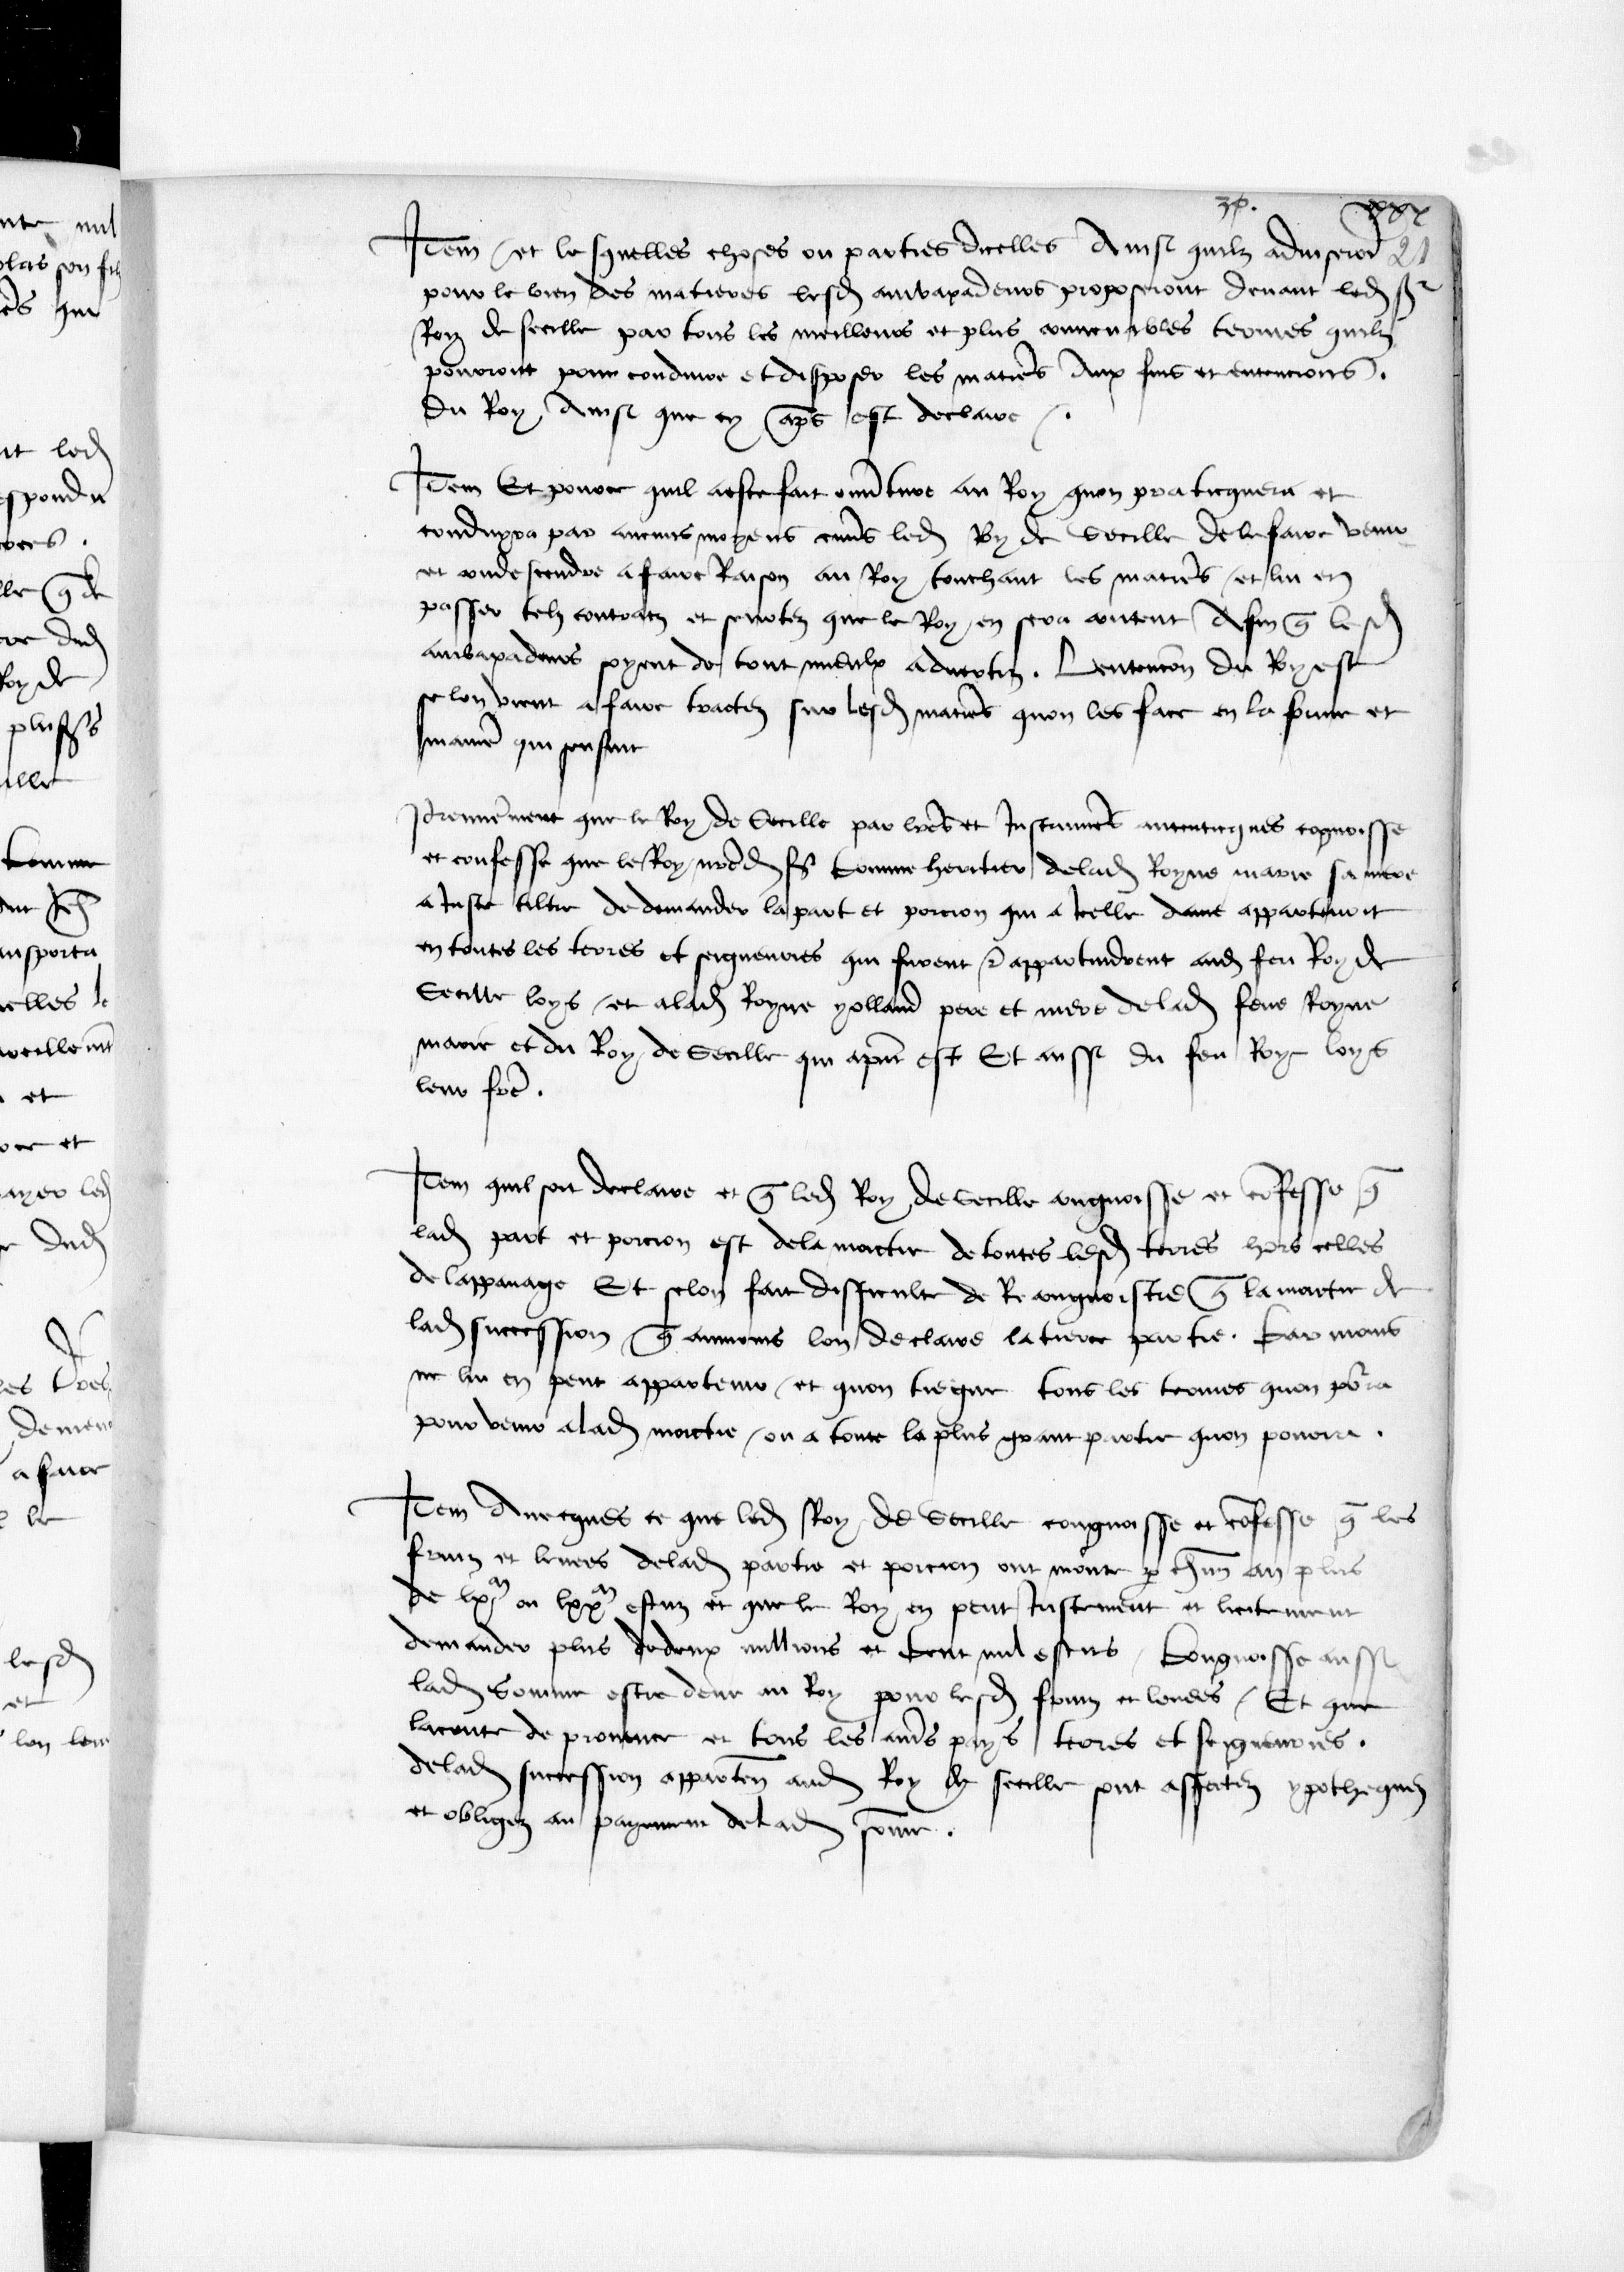 30. xxx
21
Item et lesquelles choses ou parties dicelles Ainsi quilz adviserōt
pour le bien des matieres lesd ambaxadeurs proposeront devant led sr
Roy de secille par tous les meilleurs et plus convenables termes quilz
pourront pour conduire et disposer les matieřs Aux fins et entencions .
du Roy Ainsi que cy apřs est declaire .
Item Et pource quil a este fait ouvřture au Roy quon praticquera et
conduyra par aucuns moyens envřs led Roy de Secille de le faire venir
et condescendre a faire Raison au Roy touchant les matieřs et lui en
passer telz contratz et seurtez que le Roy en sera content Afin q̄ lesd
ambaxadeurs soyent de tout mieulx advertiz . Lentencōn du Roy est
se lon vient a faire tractez sur lesd matieřs quon les face en la forme et
manieř qui sensuit
Premieřment que le Roy de Secille par lřes et Instrumēs autenticques cognoisse
et confesse que le Roy nřed sr Comme heritier delad Royne marie sa mere
a Juste tiltre de demander la part et porcion qui a Icelle dame appartenoit
en toutes les terres et seigneuries qui furent & appartindrent aud feu Roy de
Secille loys et alad Royne yolland pere et mere delad feue Royne
marie et du Roy de Secille qui apn̄t est Et aussi du feu Roy loys
leur frē .
Item quil soit declaire et q̄ led Roy de Secille congnoisse et cōfesse q̄
lad part et porcion est dela moictie de toutes lesd terres hors celles
de lappanage Et se lon fait difficulte de Recongnoistre q̄ la moictie de
lad succession q̄ aumoins lon declaire la tierce partie . Car moins
ne lui en peut appartenir et quon tiegne tous les termes quon pořra
pour venir alad moictie ou a toute la plus grant partie quon pourra .
Item Avecques ce que led Roy de Secille congnoisse et cōfesse q̄ les
fruiz et levees delad partie et porcion ont monte p chūn an plus
de lxm ou lxxm escuz et que le Roy en peut Justement et licitement
demander plus de deux millions et Cent mil escus Congnoisse aussi
lad Somme estre deue au Roy pour lesd fruiz et levees Et que
la conte de prouvence et tous les autřs pays terres et seigneuries .
delad succession appartēn aud Roy de secille sont affectez ypothequez
et obligez au payement delad somme .